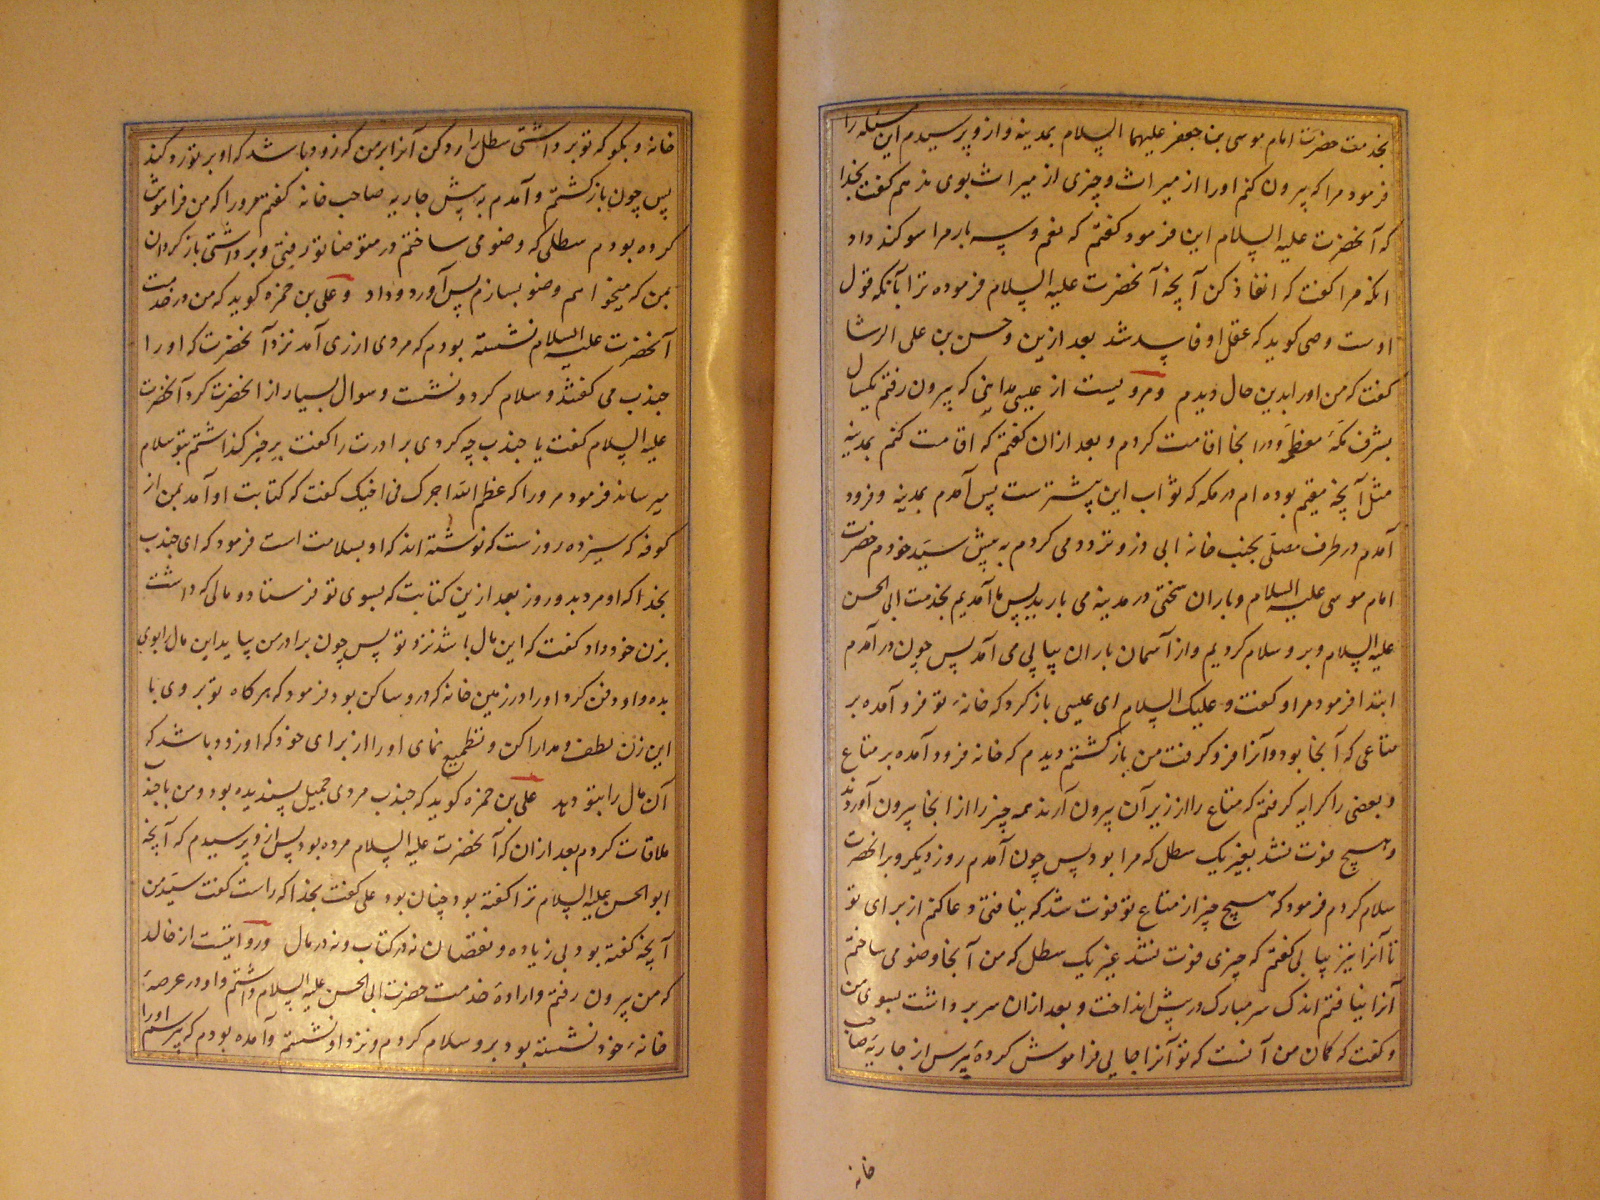 بخدمت حضرت امام موسی بن جعفر علیهما السلام بمدینه و ازو پرسیدم این مسئله را
فرمود مرا که بیرون کنم او را از میراث و چیزی از میراث بوی ندهم گفت بخدا
که آنحضرت علیه السلام این فرمود گفتم که نعم و سه بار مرا سوکند داد
انکه مرا گفت که انفاذ کن آنچه آنحضرت علیه السلام فرموده ترا بآنکه قول
اوست وصی کوید که عقل او فاسد شد بعد ازین و حسن بن علی الوشا
گفت که من او را بدین حال دیدم و مرویست از عیسی مداینی که بیرون رفتم یکسال
بشرف مکهٔ معظمه و در ابخا اقامت کردم و بعد از ان گفتم که اقامت کنم بمدینه
مثل آنچه مقیم بوده ام در مکه که ثواب این بیشترست پس آمدم بمدینه و فرود
آمدم در طرف مصلی بجنب خانه ابی ذر و تردد می کردم به پیش سید خودم حضرت
امام موسی علیه السلام و باران سختی در مدینه می بارید پس ما آمدیم بخدمت ابی الحسن
علیه السلام و برو سلام کردیم و از آسمان باران پیاپی می آمد پس چون در آمدم
ابتدا فرمود مرا و گفت و علیک السلام ای عیسی باز کرد که خانهٔ تو فرو آمده بر
متاعی که آنجا بود و آنرا فرو کرفت من باز کشتم دیدم که خانه فرود آمده بر متاع
و بعضی را کرایه کرفتم که متاع را از زیر آن بیرون آرند همه چیز را از انجا بیرون آوردند
و هیچ فوت نشد بغیر یک سطل که مرا بود پس چون آمدم روز دیکر و بر آنحضرت
سلام کردم فرمود که هیچ چیز از متاع تو فوت شد که نیافتی و دعا کنم از برای تو
تا آنرا نیز بیابی گفتم که چیزی فوت نشد غیر یک سطل که من آنجا وضو می ساختم
آنرا نیافتم اندک سر مبارک در پیش انداخت و بعد از ان سر برداشت بسوی من
و گفت که کمان من آنست که تو آنرا جایی فراموش کردهٔ بپرس از جاریهٔ صاحب
خانه
خانه و بکو که تو برداشتی سطل را رد کن آنرا بر من که زود باشد که او بر تو رد کند
پس چون باز کشتم و آمدم به پیش جاریه صاحب خانه گفتم مرورا که من فراموش
کرده بودم سطلی که وضو می ساختم در متوضا تو رفتی و برداشتی باز کردان
بمن که میخواهم وضو بسازم پس آورد و داد و علی بن حمزه کوید که من در خدمت
آنحضرت علیه السلام نشسته بودم که مردی از ری آمد نزد آنحضرت که او را
جندب می گفتند و سلام کرد و نشست و سوال بسیار از آنحضرت کرد آنحضرت
علیه السلام گفت یا جندب چه کردی برادرت را گفت بر خیر گذاشتم بتو سلام
میرساند فرمود مرورا که عظم الله اجرک فی اخیک گفت که کتابت او آمد بمن از
کوفه که سیزده روزست که نوشته اند که او بسلامت است فرمود که ای جندب
بخدا که او مرد بدو روز بعد ازین کتابت که بسوی تو فرستاد و مالی که داشت
بزن خود داد گفت که این مال باشد نزد تو پس چون برادر من بیاید این مال را بوی
بده و او دفن کرد او را در زمین خانه که درو ساکن بود فرمود که هر کاه تو بروی با
این زن لطف و مدارا کن و تطمیع نمای او را از برای خود که او زود باشد که
آن مال را بتو دهد علی بن حمزه کوید که جندب مردی جمیل پسندیده بود و من با جندب
ملاقات کردم بعد از ان که آنحضرت علیه السلام مرده بود پس ازو پرسیدم که آنچه
ابو الحسن علیه السلام ترا گفته بود چنان بود علی گفت بخدا که راست گفت سید من
آنچه گفته بود بی زیاده و نقصان نه در کتاب و نه در مال و روایتست از خالد
که من بیرون رفتم و ارادهٔ خدمت حضرت ابی الحسن علیه السلام داشتم و او در عرصهٔ
خانهٔ خود نشسته بود برو سلام کردم و نزد او نشستم و آمده بودم که بپرسم او را